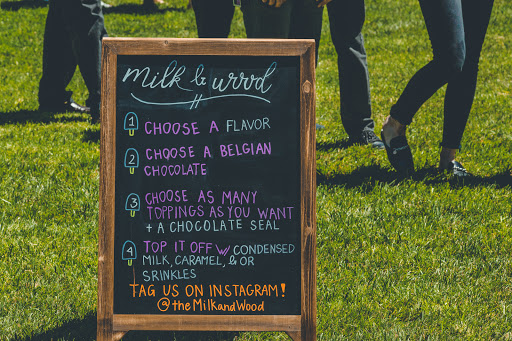 Milk & wood
1 CHOOSE A FLAVOR
2 CHOOSE A BELGIAN
CHOCOLATE
3 CHOOSE AS MANY
TOPPINGS AS YOU WANT
+ A CHOCOLATE SEAL
4 TOP IT OFF W/ CONDENSED
MILK, CARAMEL, & OR
SRINKLES
TAG US ON INSTAGRAM!
@theMilkandWood